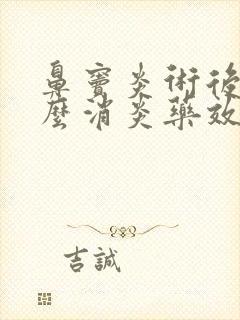 鼻竇炎術後
麼消炎藥效
吉誠